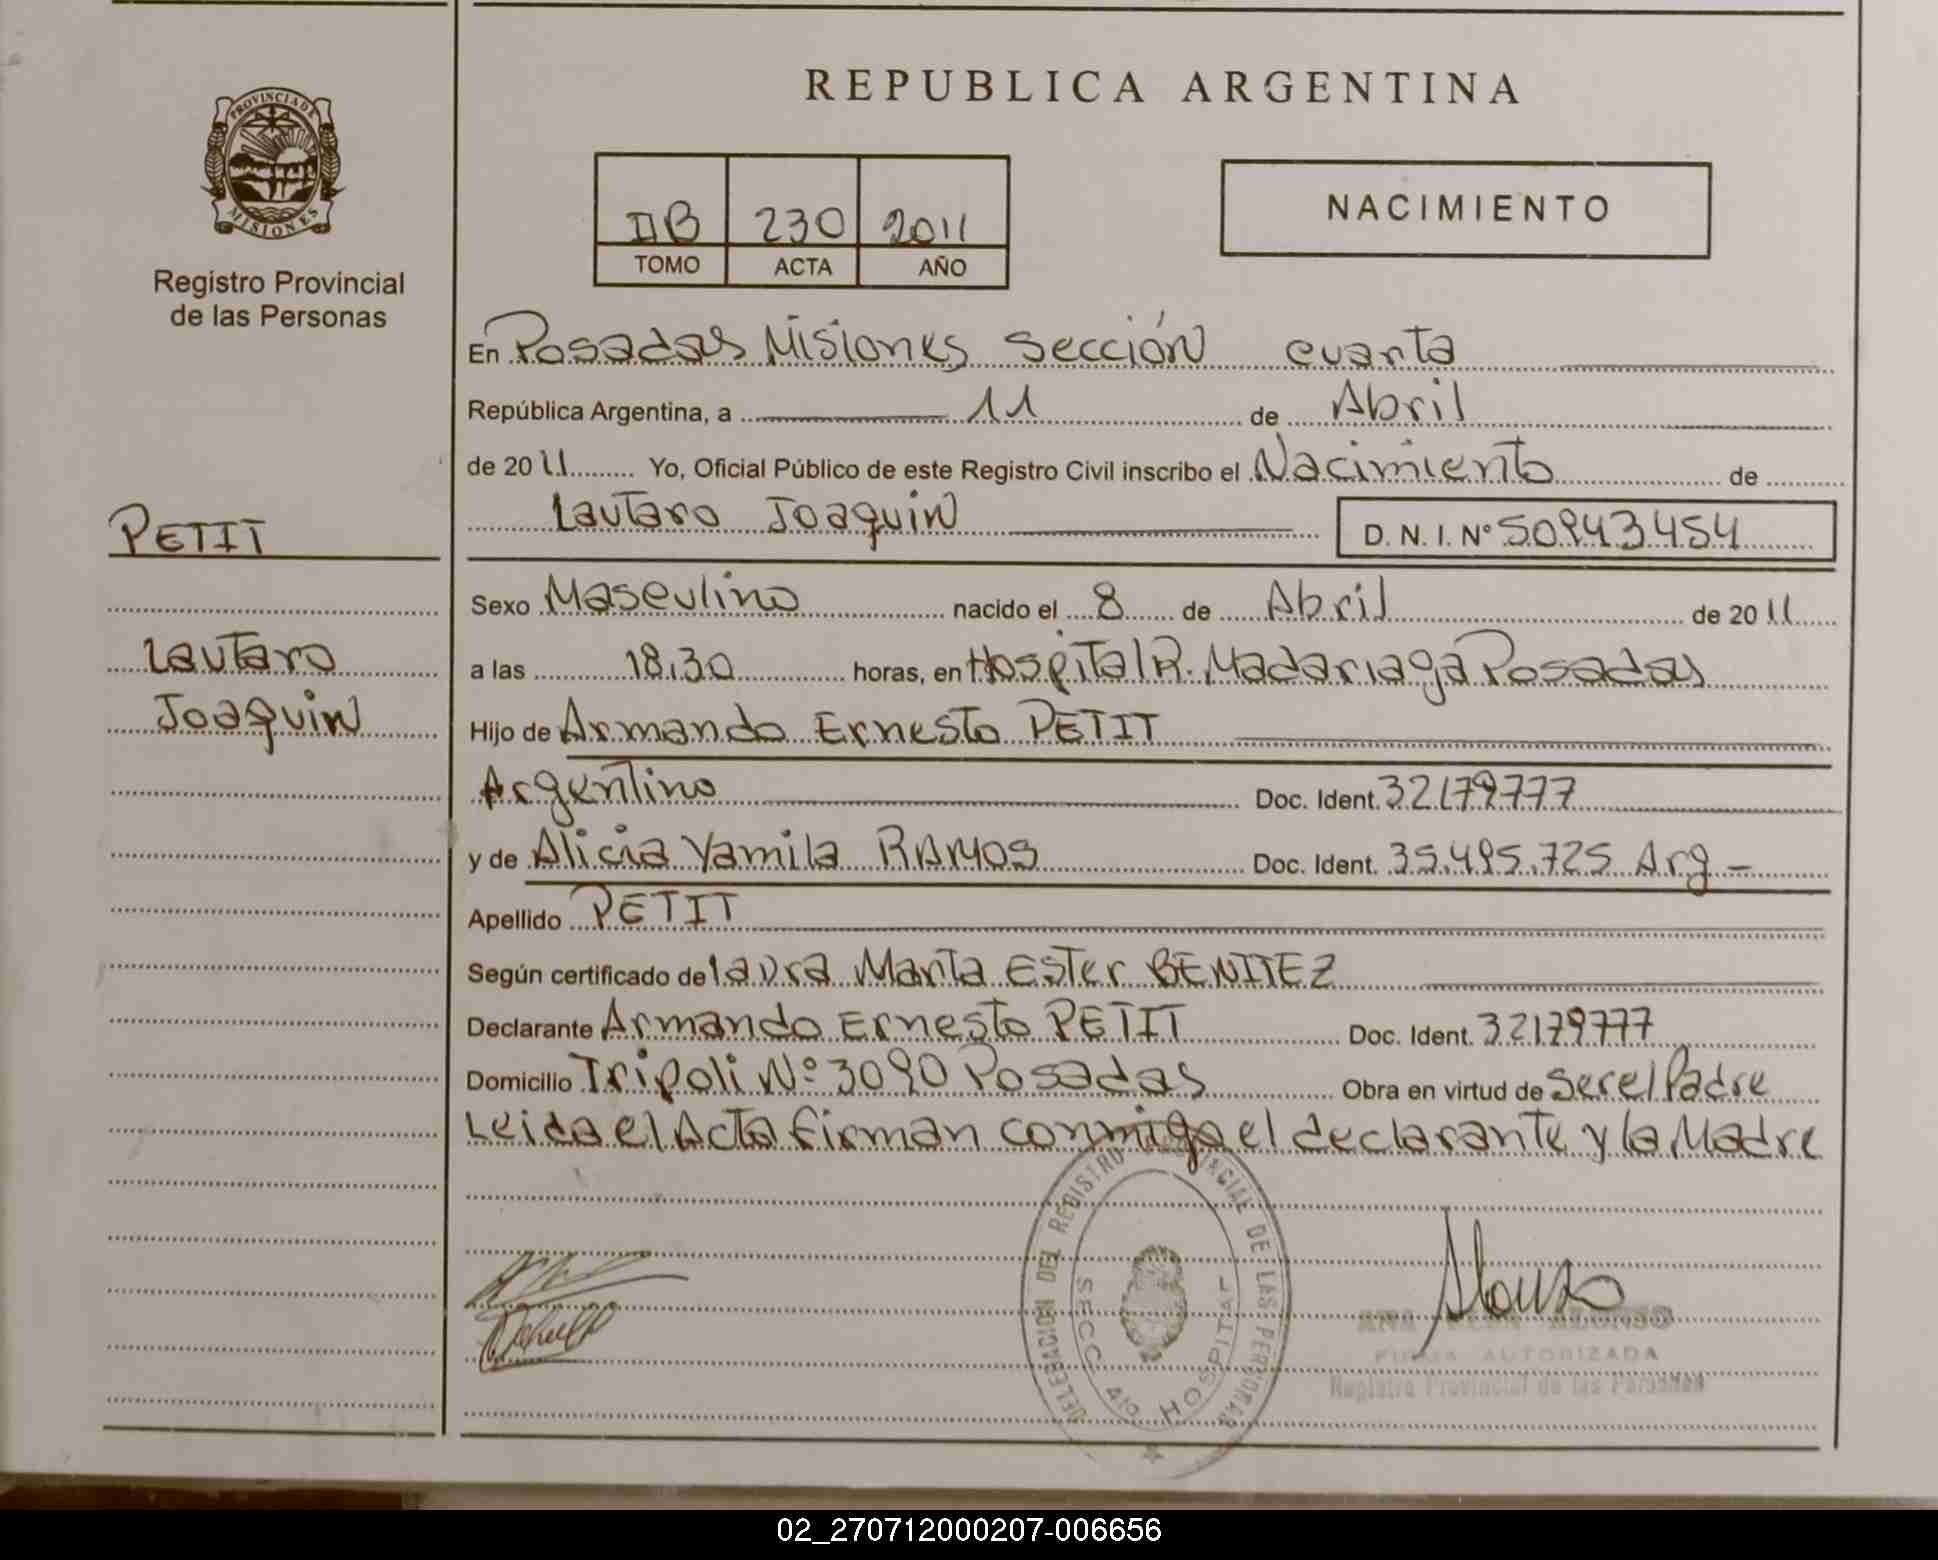 REPUBLICA ARGENTINA
PROVINCIA DE
MISIONES
Registro Provincial
de las Personas
IIB 230 2011
TOMO ACTA AÑO
NACIMIENTO
En Posadas Misiones Sección cuarta
República Argentina, a 11 de Abril
de 2011 Yo, Oficial Público de este Registro Civil inscribo el Nacimiento de
Lautaro Joaquin D. N. I. Nº 50943454
PETIT
Sexo Masculino nacido el 8 de Abril de 2011
Lautaro
Joaquin
a las 18,30 horas, en Hospital R. Madariaga Posadas
Hijo de Armando Ernesto PETIT
Argentino Doc. Ident. 32179777
y de Alicia Yamila RAMOS Doc. Ident. 35.495.725 Arg -
Apellido PETIT
Según certificado de Laura Marta Ester BENITEZ
Declarante Armando Ernesto PETIT Doc. Ident. 32179777
Domicilio Tripoli Nº 3090 Posadas Obra en virtud de ser el Padre
Leida el Acta firman conmigo el declarante y la Madre
DELEGACION DEL REGISTRO PROVINCIAL DE LAS PERSONAS
SECC. 4ta HOSPITAL
Alonso
ANA ALONSO
FIRMA AUTORIZADA
Registro Provincial de las Personas
02_270712000207-006656